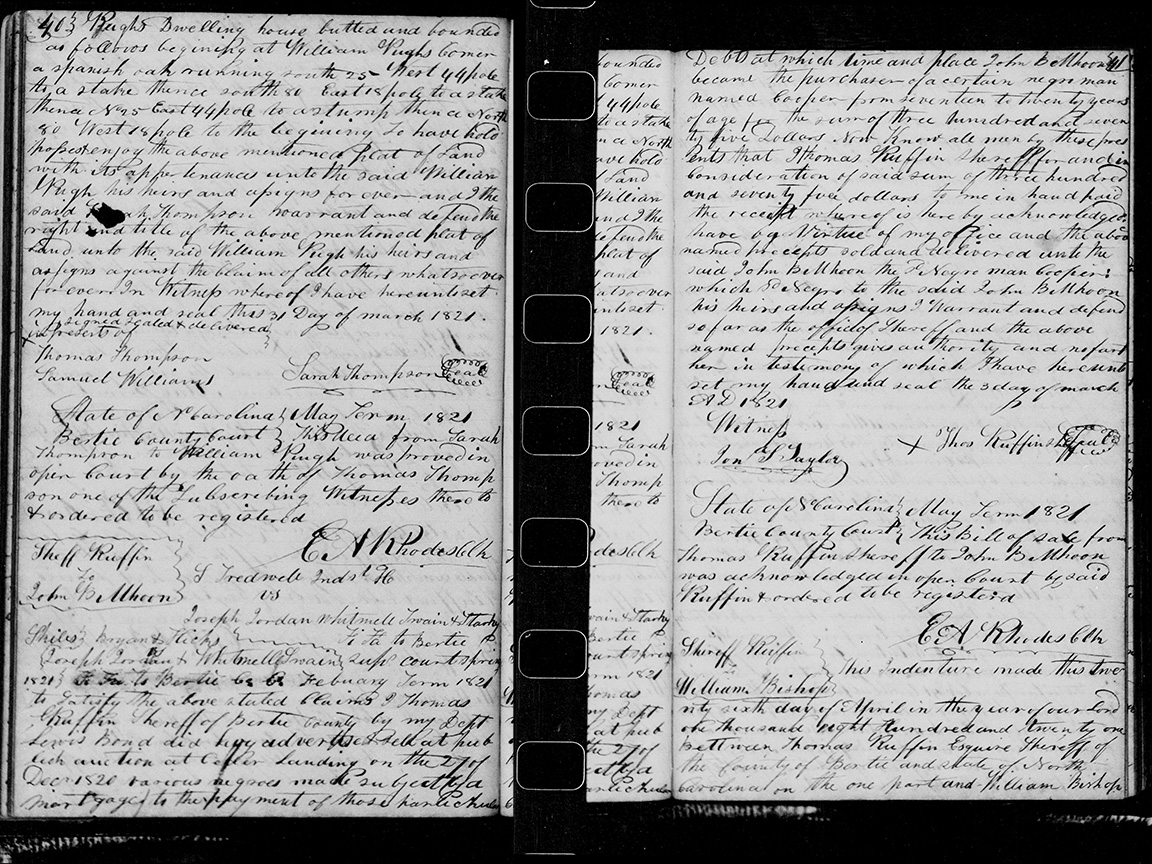 40} Pughs Dwelling house butted and bounded
as follows begining at William Pughs Corner
a spanish oak running south 25 West 44 pole
to a stake thence south 80 East 18 pole to a stake
thence N 25 East 44 pole to a stump thence North
80 West 18 pole to the begining To have hold
posess enjoy the above mentioned plat of Land
with its appertenances unto the said William
Pugh his heirs and assigns for ever and I the
said Sarah Thompson warrant and defend the
right and title of the above mentioned plat of
Land unto the said William Pugh his heirs and
assigns against the claim of all others whatsoever
forever In Witness whereof I have hereunto set
my hand and seal this 31 Day of march 1821.
signed sealed & delivered
in presents of
Thomas Thompson
Samuel Williams Sarah Thompson Seal
State of N carolina } May Term 1821
Bertie County Court } This Deed from Sarah
Thompson to William Pugh was proved in
open Court by the oath of Thomas Thomp
son one of the Subscribing Witnesses thereto
& ordered to be registered
E A Rhodes Clk
Sheff Ruffin
To
John B Mhoon
S Tredwell
vs
Joseph Jordan Whitmell Swain & Stark
Bryan & Hicks Fi Fa to Bertie
Joseph Jordan & Whitmell Swain sup court spring
1821 Febuary Term 1821
to satisfy the above stated Claims I Thomas
Ruffin Shereff of Bertie County by my Dept
Lewis Bond did levy advertise & sell at pub
lick auction at Landing on the 27 of
Decr 1820 various negroes made subject by a
mortgage to the payment of those particular
41
Debts at which time and place John B Mhoon
became the purchaser of a certain negro man
named Cooper from seventeen to twenty years
of age for the sum of three hundred and seven
ty five Dollars Now Know all men by these pres
ents that I Thomas Ruffin Shereff for and in
consideration of said sum of three hundred
and seventy five dollars to me in hand paid
the receipt whereof is here by acknowledged
have by Virtue of my office and the above
named precepts sold and delivered unto the
said John B Mhoon the sd Negro man Cooper:
which sd Negro to the said John B Mhoon
his heirs and assigns I Warrant and defend
so far as the office of Shereff and the above
named precepts gives authority and no fart
her in testemony of which I have hereunto
set my hand and seal the 3 day of march
A D 1821
Witness
Jon S Taylor × Thos Ruffin sh Seal
State of N Carolina } May Term 1821
Bertie County Court } This Bill of sale from
Thomas Ruffin shereff to John B Mhoon
was acknowledged in open Court by said
Ruffin & ordered to be registerd
E A Rhodes Clk
Shereff Ruffin
William Bishop } This Indenture made this twe
nty sixth day of April in the year of our Lord
one thousand eight Hundred and twenty one
Bettween Thomas Ruffin Esquire Shereff of
the County of Bertie and state of North
Carolina on the one part and William Bishop